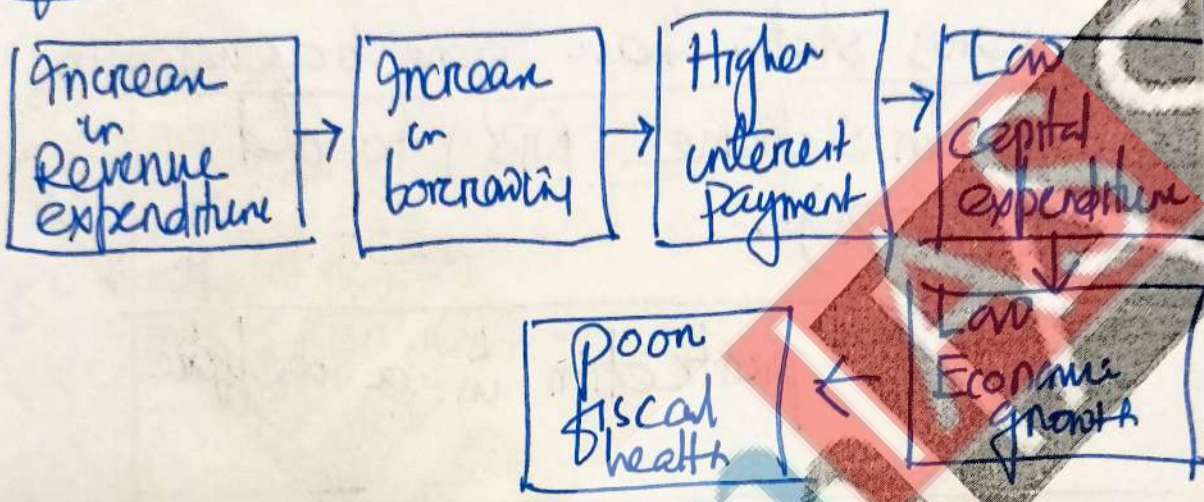 Increase
in
Revenue
expenditure
Increase
in
borrowing
Higher
interest
payment
Low
capital
expenditure
Low
Economic
growth
Poor
fiscal
health